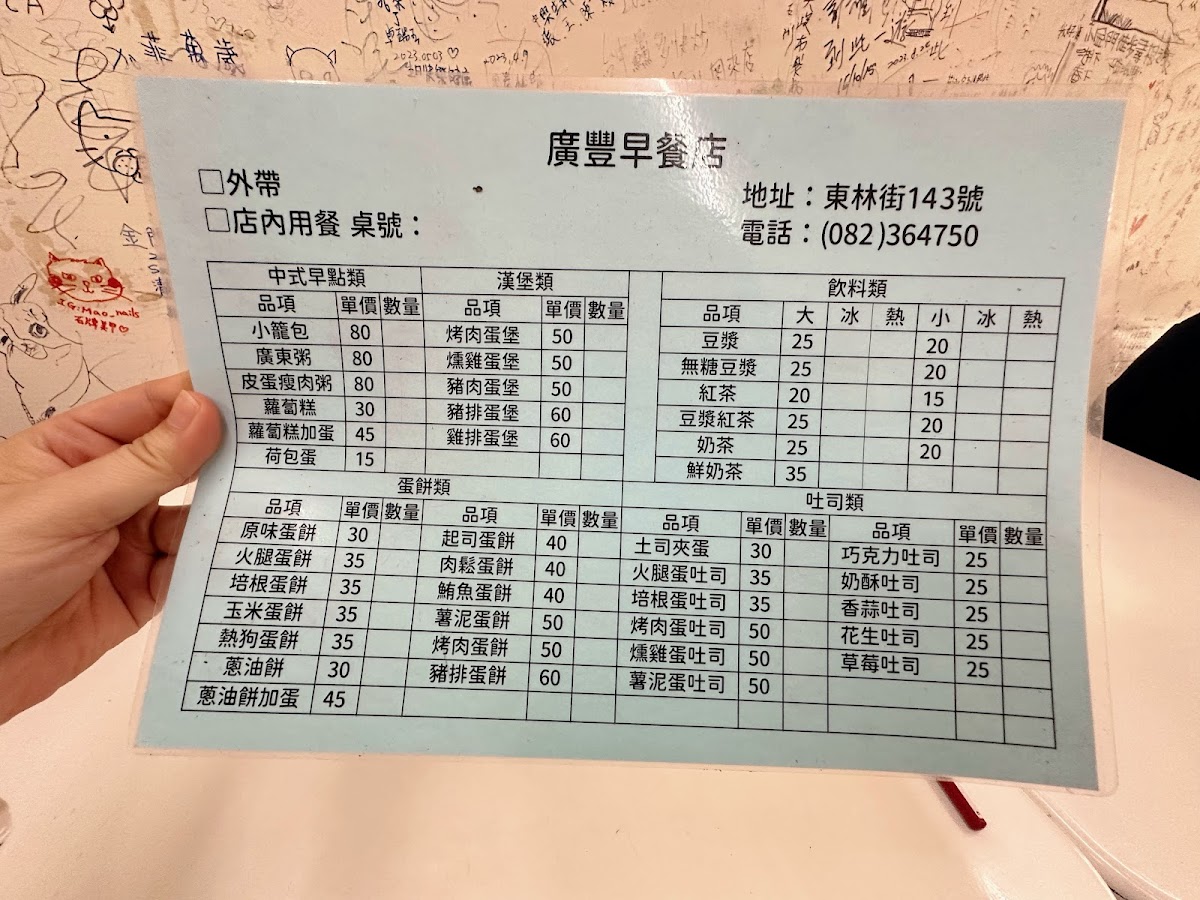 菲萬歲
2023.0503
2023.4.9
到此一遊
IG:Mao_nails
廣豐早餐店
□外帶
地址：東林街143號
□店內用餐 桌號：
電話：(082)364750
中式早點類 漢堡類 飲料類
品項 單價 數量 品項 單價 數量 品項 大 冰 熱 小 冰 熱
小籠包 80 烤肉蛋堡 50 豆漿 25 20
廣東粥 80 燻雞蛋堡 50 無糖豆漿 25 20
皮蛋瘦肉粥 80 豬肉蛋堡 50 紅茶 20 15
蘿蔔糕 30 豬排蛋堡 60 豆漿紅茶 25 20
蘿蔔糕加蛋 45 雞排蛋堡 60 奶茶 25 20
荷包蛋 15 鮮奶茶 35
蛋餅類 吐司類
品項 單價 數量 品項 單價 數量 品項 單價 數量 品項 單價 數量
原味蛋餅 30 起司蛋餅 40 土司夾蛋 30 巧克力吐司 25
火腿蛋餅 35 肉鬆蛋餅 40 火腿蛋吐司 35 奶酥吐司 25
培根蛋餅 35 鮪魚蛋餅 40 培根蛋吐司 35 香蒜吐司 25
玉米蛋餅 35 薯泥蛋餅 50 烤肉蛋吐司 50 花生吐司 25
熱狗蛋餅 35 烤肉蛋餅 50 燻雞蛋吐司 50 草莓吐司 25
蔥油餅 30 豬排蛋餅 60 薯泥蛋吐司 50
蔥油餅加蛋 45